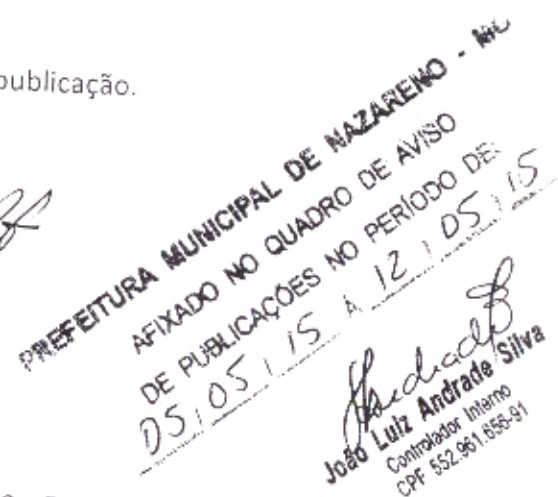 publicação.
PREFEITURA MUNICIPAL DE NAZARENO - MG
AFIXADO NO QUADRO DE AVISO
DE PUBLICAÇÕES NO PERÍODO DE:
05/05/15 A 12/05/15
João Luiz Andrade Silva
Controlador Interno
CPF 552.961.656-91